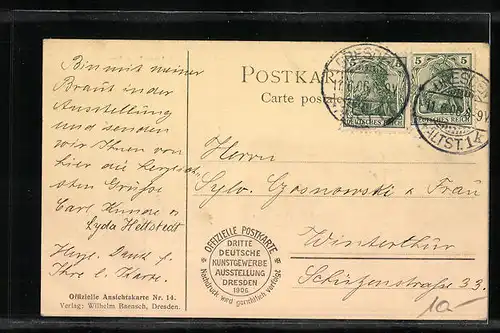 POSTKARTE
Carte postale
Bin mit meiner
Braut in der
Ausstellung
und senden
wir Ihnen von
hier die herzlich
sten Grüße
Carl Kunde u
Lyda Hellstedt
Herzl. Dank f.
Ihre l. Karte.
Offizielle Ansichtskarte Nr. 14.
Verlag: Wilhelm Baensch, Dresden.
DRESDEN
DEUTSCHES REICH
5
5
DRESDEN
ALTST. 14
Herrn
Sylv. u Frau
Winterthur
Schützenstraße 33.
OFFIZIELLE POSTKARTE
DRITTE
DEUTSCHE
KUNSTGEWERBE
AUSSTELLUNG
DRESDEN
1906
Nachdruck wird gerichtlich verfolgt
10.-